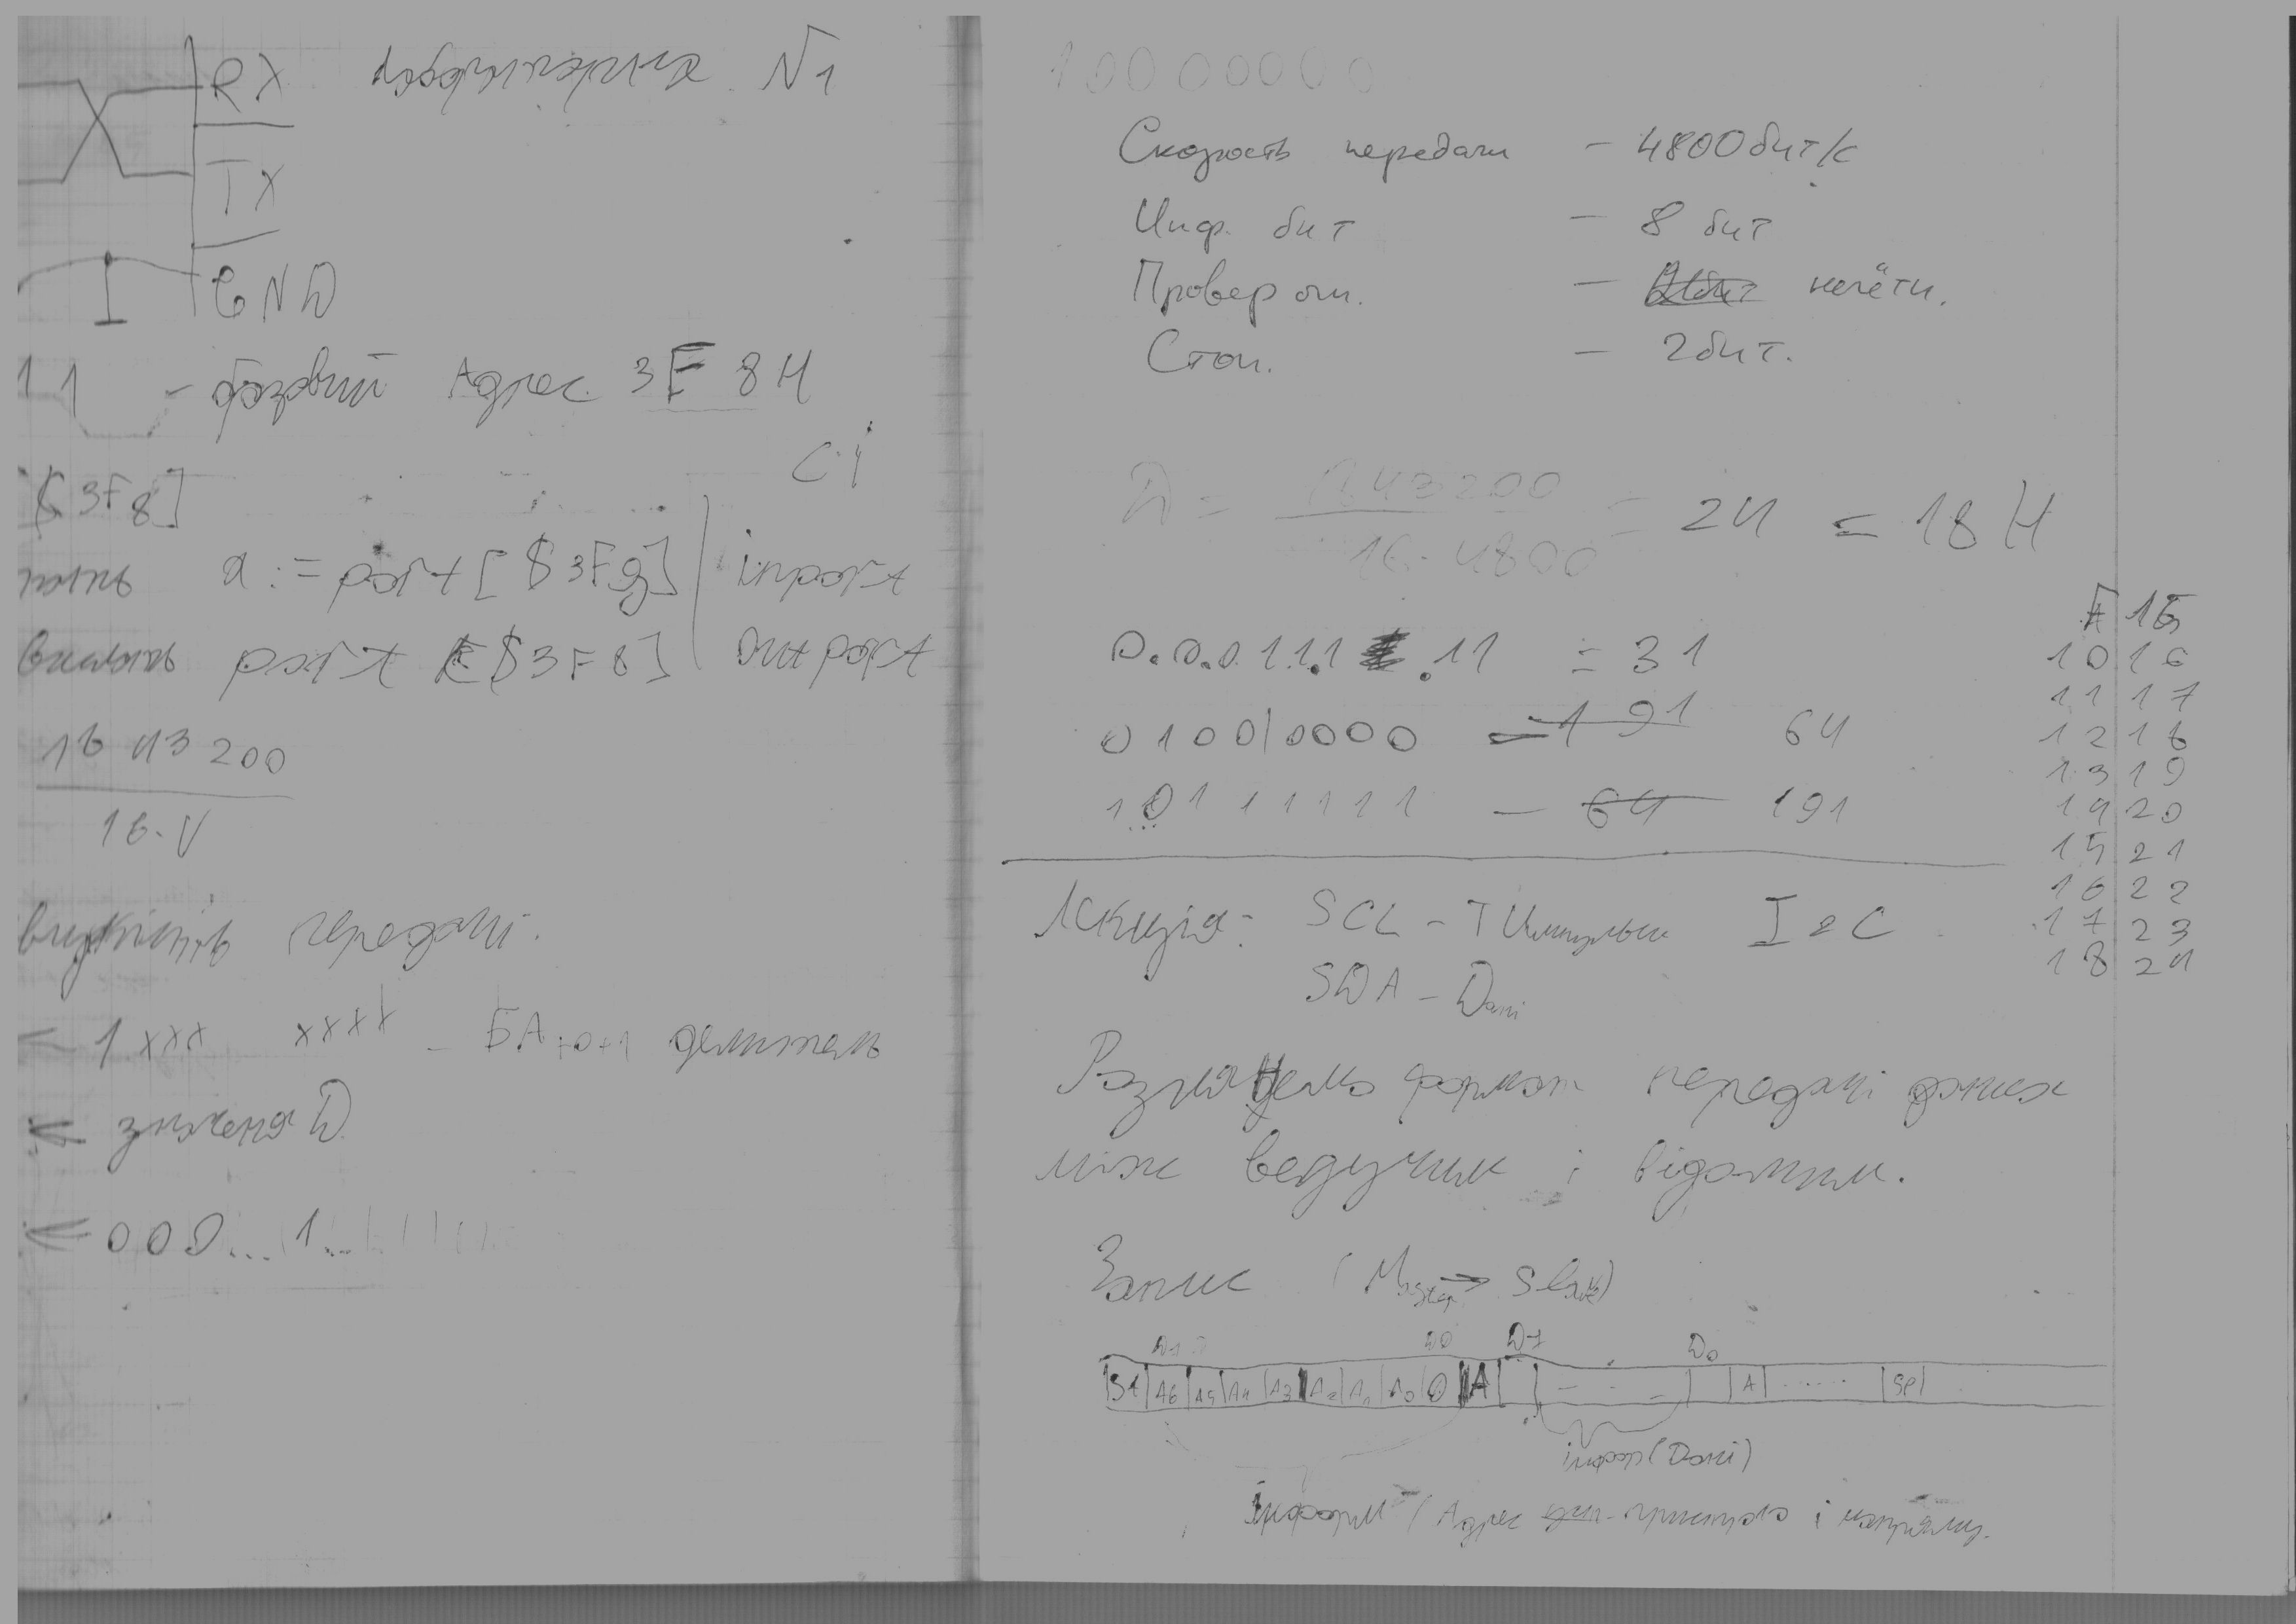 RX Лабораторна N1
TX
GND
11 - базовий Адрес 3F8H
Сі
[$3F8]
a := port [$3F8] inport
port [$3F8] outport
1843200
16·V
передачі.
← 1xxx xxxx - БА+0+1 делитель
← значення D
← 000... 1...
10000000
Скорость передачи - 4800 бит/с
Инф. бит - 8 бит
Провер ош. - нечётн.
Стоп. - 2 бит.
D = 1843200 / 16·4800 = 24 = 18H
0.0.0.1.1.1.11 = 31
0100|0000 = 191 64
10111111 - 64 191
F 15
10 16
11 17
12 18
13 19
14 20
15 21
16 22
17 23
18 24
Лекція: SCL - ТИмпульси I2C
SDA - Дані
Розглянемо формат передачі даних
між ведучим і відомим.
Запис (Master → Slave)
D7 D0 D7 D0
St A6 A5 A4 A3 A2 A1 A0 0 A - - - A ..... SP
інфор (Дані)
Інформ (Адрес пристрою і напряму.